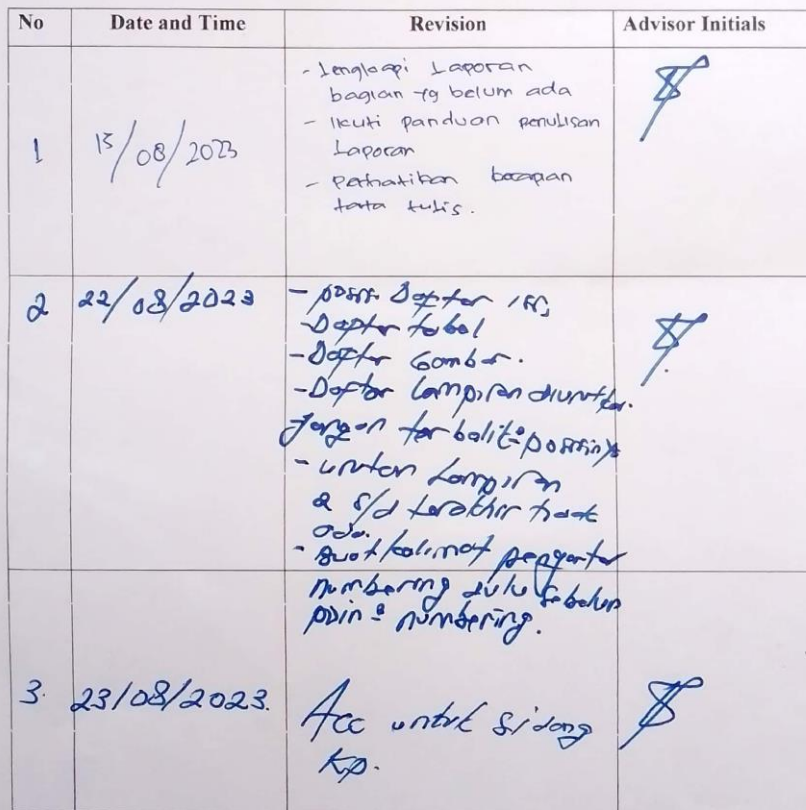 No Date and Time Revision Advisor Initials
1 15/08/2023
- Lengkapi Laporan
bagian yg belum ada
- Ikuti panduan penulisan
Laporan
- Perhatikan
tata tulis.
2 22/08/2023
- posisi Daftar isi,
- Daftar tabel
- Daftar Gambar.
- Daftar Lampiran diurutkan.
Jangan terbalik² posisinya
- urutan Lampiran
2 s/d terakhir tidak
ada.
- Buat kalimat pengantar
numbering dulu sebelum
poin² numbering.
3. 23/08/2023.
Acc untuk Sidang
KP.